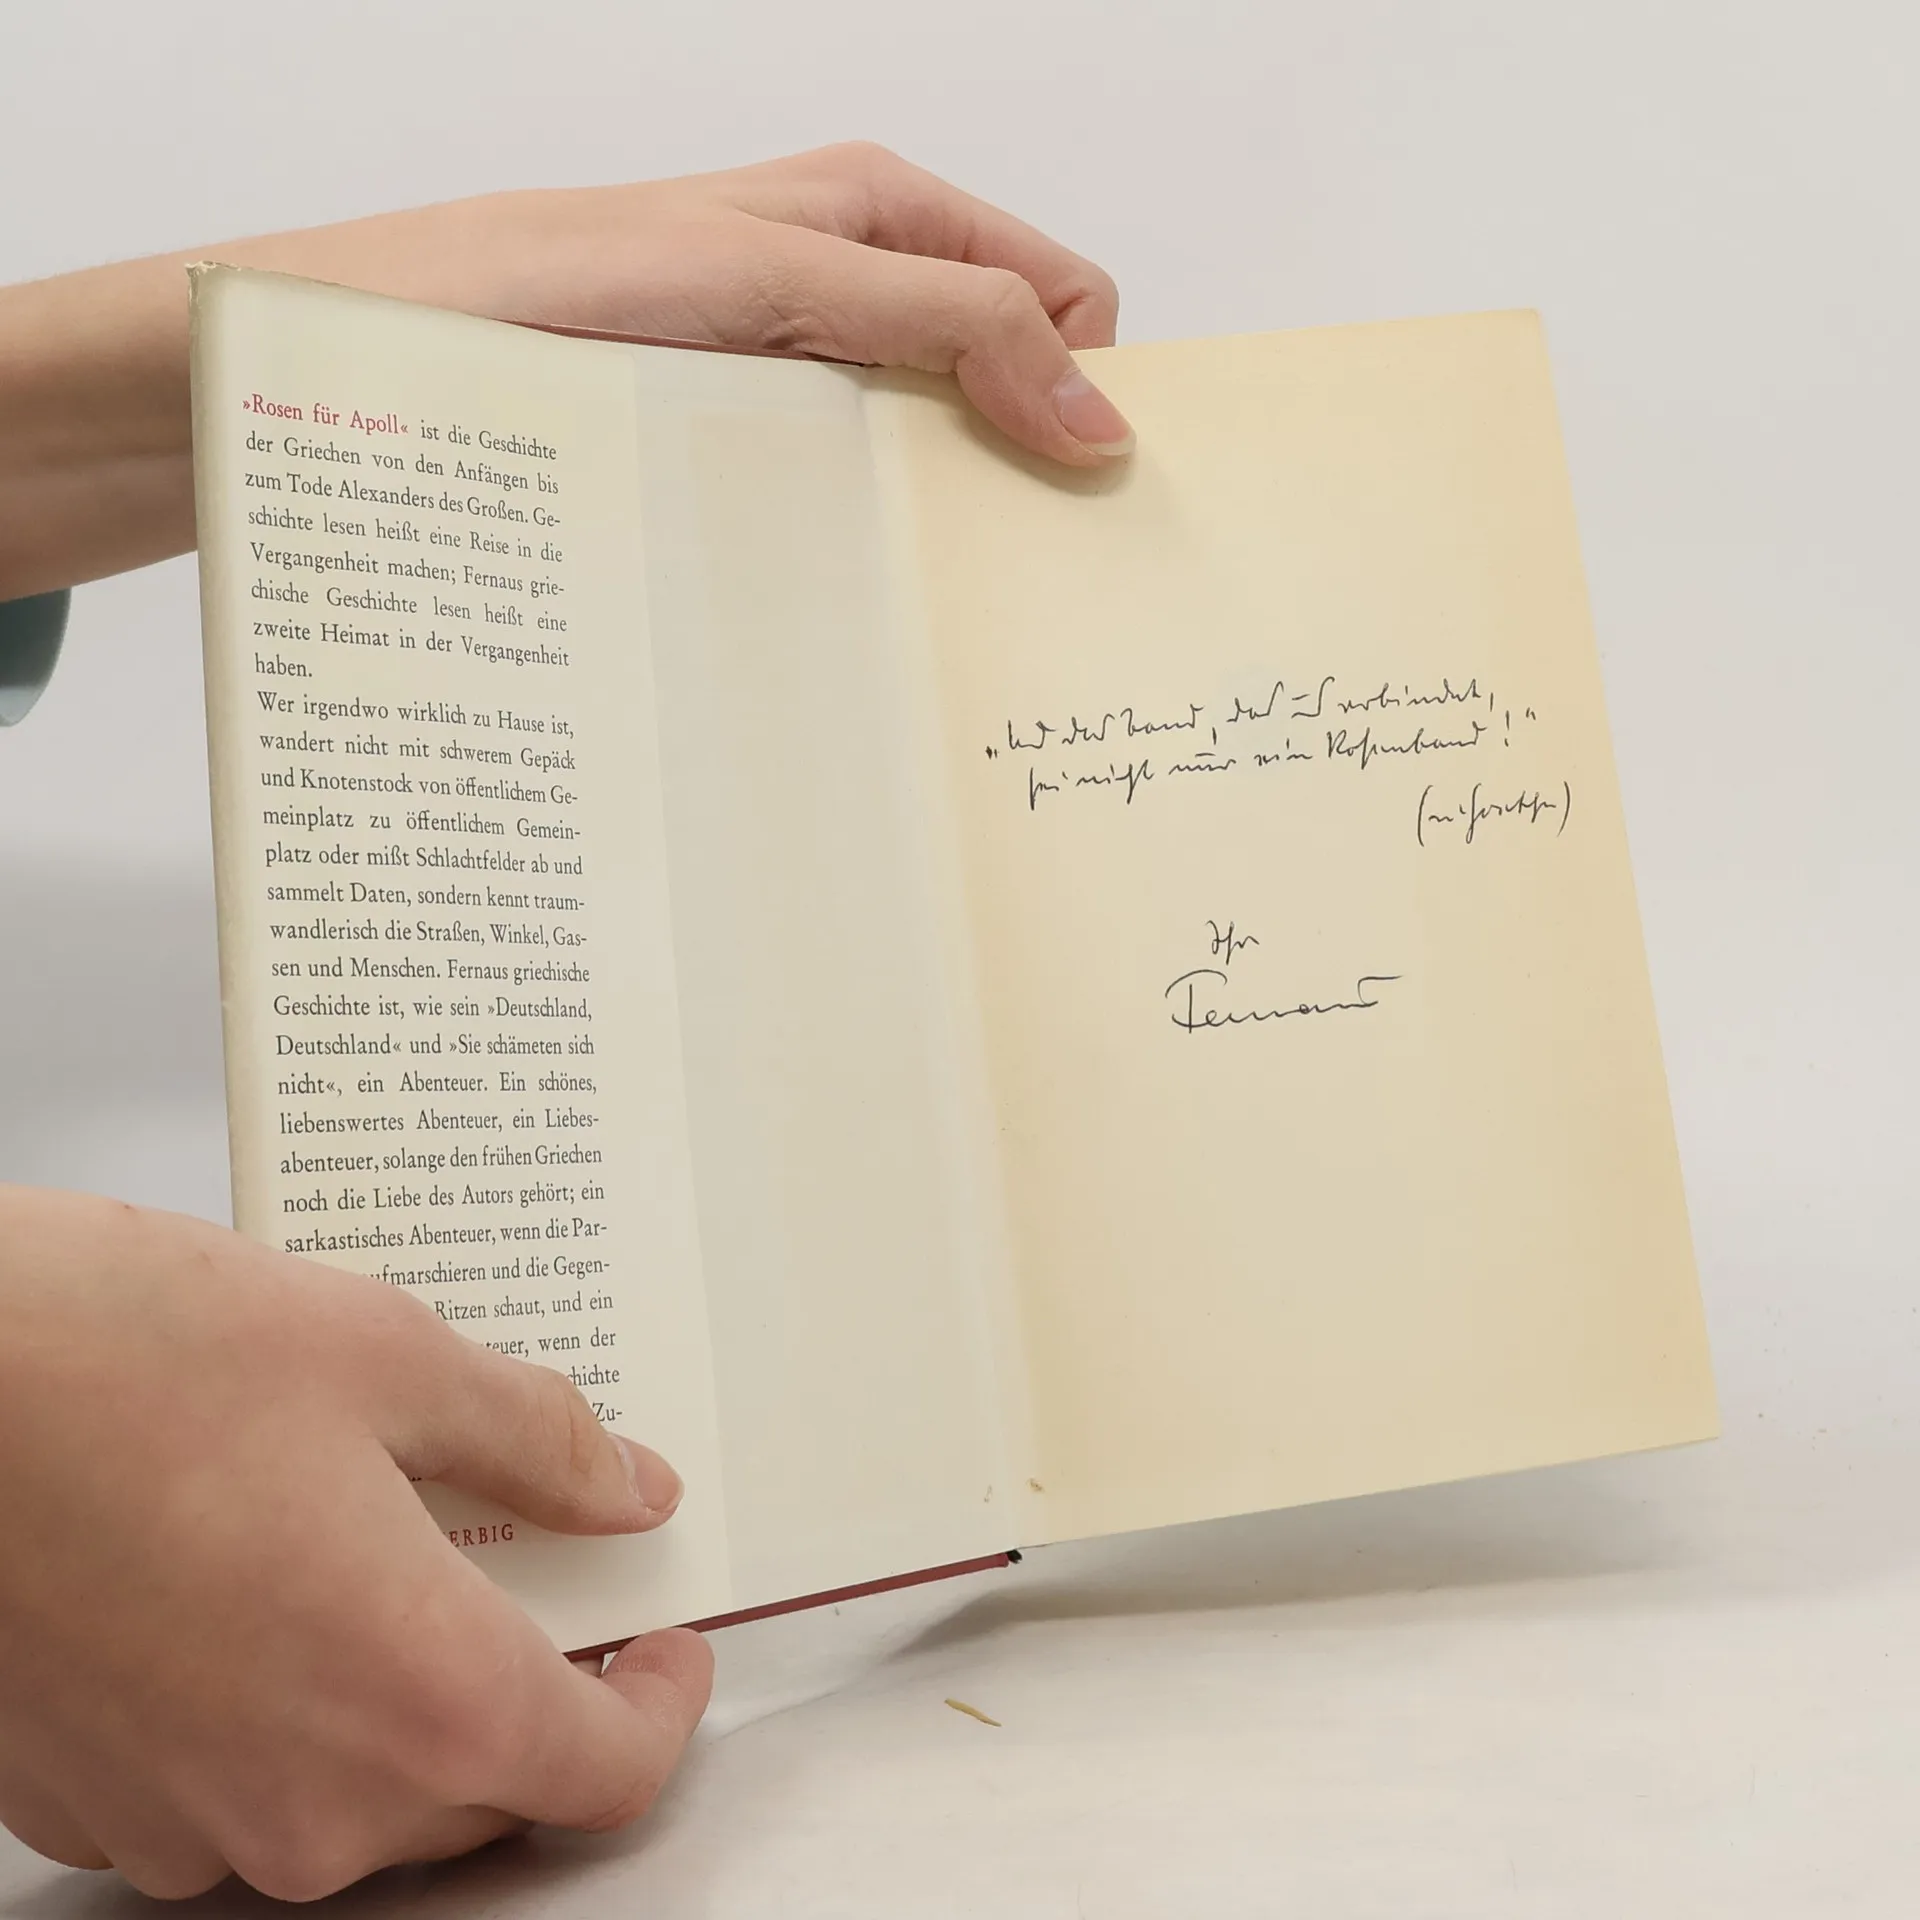 »Rosen für Apoll« ist die Geschichte
der Griechen von den Anfängen bis
zum Tode Alexanders des Großen. Ge-
schichte lesen heißt eine Reise in die
Vergangenheit machen; Fernaus grie-
chische Geschichte lesen heißt eine
zweite Heimat in der Vergangenheit
haben.
Wer irgendwo wirklich zu Hause ist,
wandert nicht mit schwerem Gepäck
und Knotenstock von öffentlichem Ge-
meinplatz zu öffentlichem Gemein-
platz oder mißt Schlachtfelder ab und
sammelt Daten, sondern kennt traum-
wandlerisch die Straßen, Winkel, Gas-
sen und Menschen. Fernaus griechische
Geschichte ist, wie sein »Deutschland,
Deutschland« und »Sie schämeten sich
nicht«, ein Abenteuer. Ein schönes,
liebenswertes Abenteuer, ein Liebes-
abenteuer, solange den frühen Griechen
noch die Liebe des Autors gehört; ein
sarkastisches Abenteuer, wenn die Par-
ufmarschieren und die Gegen-
Ritzen schaut, und ein
teuer, wenn der
chichte
Zu-
ERBIG
„Und das Band, das uns verbindet,
sei nicht nur ein Rosenband!“
Ihr
Fernau